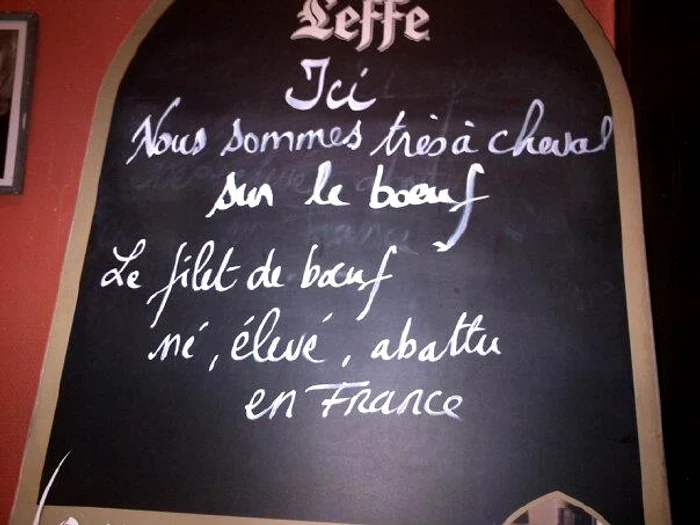 Leffe
Ici
Nous sommes très à cheval
sur le bœuf
Le filet de bœuf
né, élevé, abattu
en France